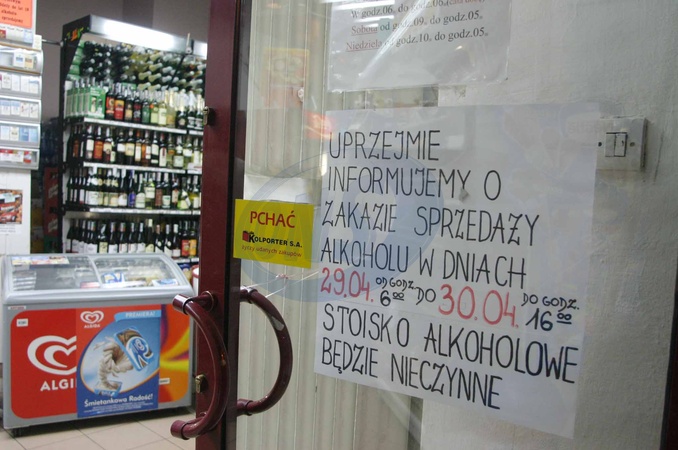 W godz.06. do godz.06.
Sobota od godz.09. do godz.05.
Niedziela od godz.10. do godz.05.
UPRZEJMIE
INFORMUJEMY O
ZAKAZIE SPRZEDAŻY
ALKOHOLU W DNIACH
29.04. OD GODZ. 6 00 DO 30.04. DO GODZ. 16 00
STOISKO ALKOHOLOWE
BĘDZIE NIECZYNNE
PCHAĆ
KOLPORTER S.A.
ALGIDA
ALGIDA
PREMIERA!
Śmietankowa Radość!